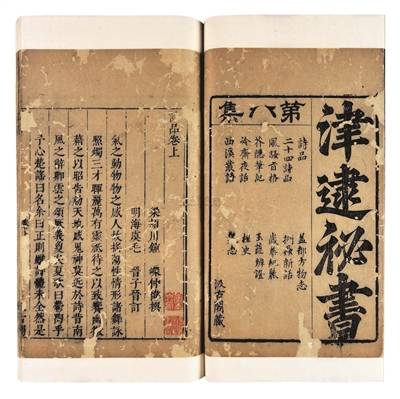 津逮祕書
第八集
詩品
益部方物志
二十四詩品
捫蝨新話
風騷旨格
歲華紀麗
芥隱筆記
玉蕊辨證
冷齋夜話
西溪叢語
汲古閣藏
品卷上
梁潁川鍾 嶸仲偉撰
明海虞毛 晉子晉訂
氣之動物物之感人故搖蕩性情形諸舞詠
照燭三才暉麗萬有靈祇待之以致饗幽微
藉之以昭告動天地感鬼神莫近於詩昔南
風之辭卿雲之頌厥義夐矣夏歌曰鬱陶乎
予心楚謠曰名余曰正則雖詩體未全然是